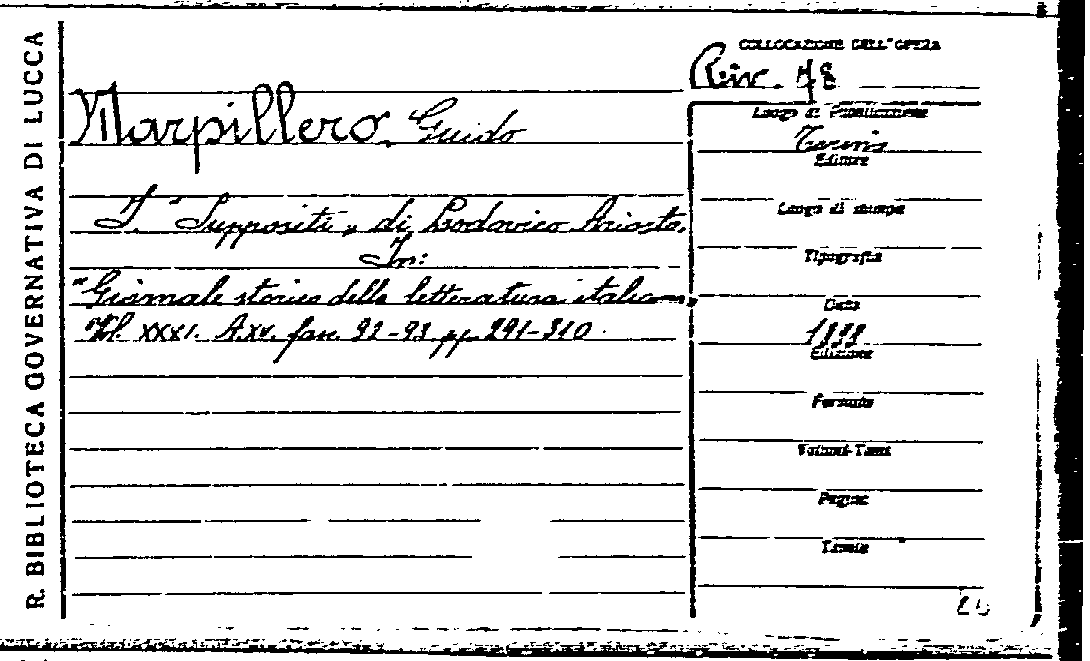 R. BIBLIOTECA GOVERNATIVA DI LUCCA
COLLOCAZIONE DELL'OPERA
Riv. 78
Marpillero, Guido
I. "Suppositi„ di Lodovico Ariosto.
In:
"Giornale storico della letteratura italiana,
Vol. XXXI. A. XV. fasc. 92-93 pp. 291-310.
Luogo di Pubblicazione
Torino
Editore
Luogo di stampa
Tipografia
Data
Edizione
Formato
Volumi-Tomi
Pagine
Tavole